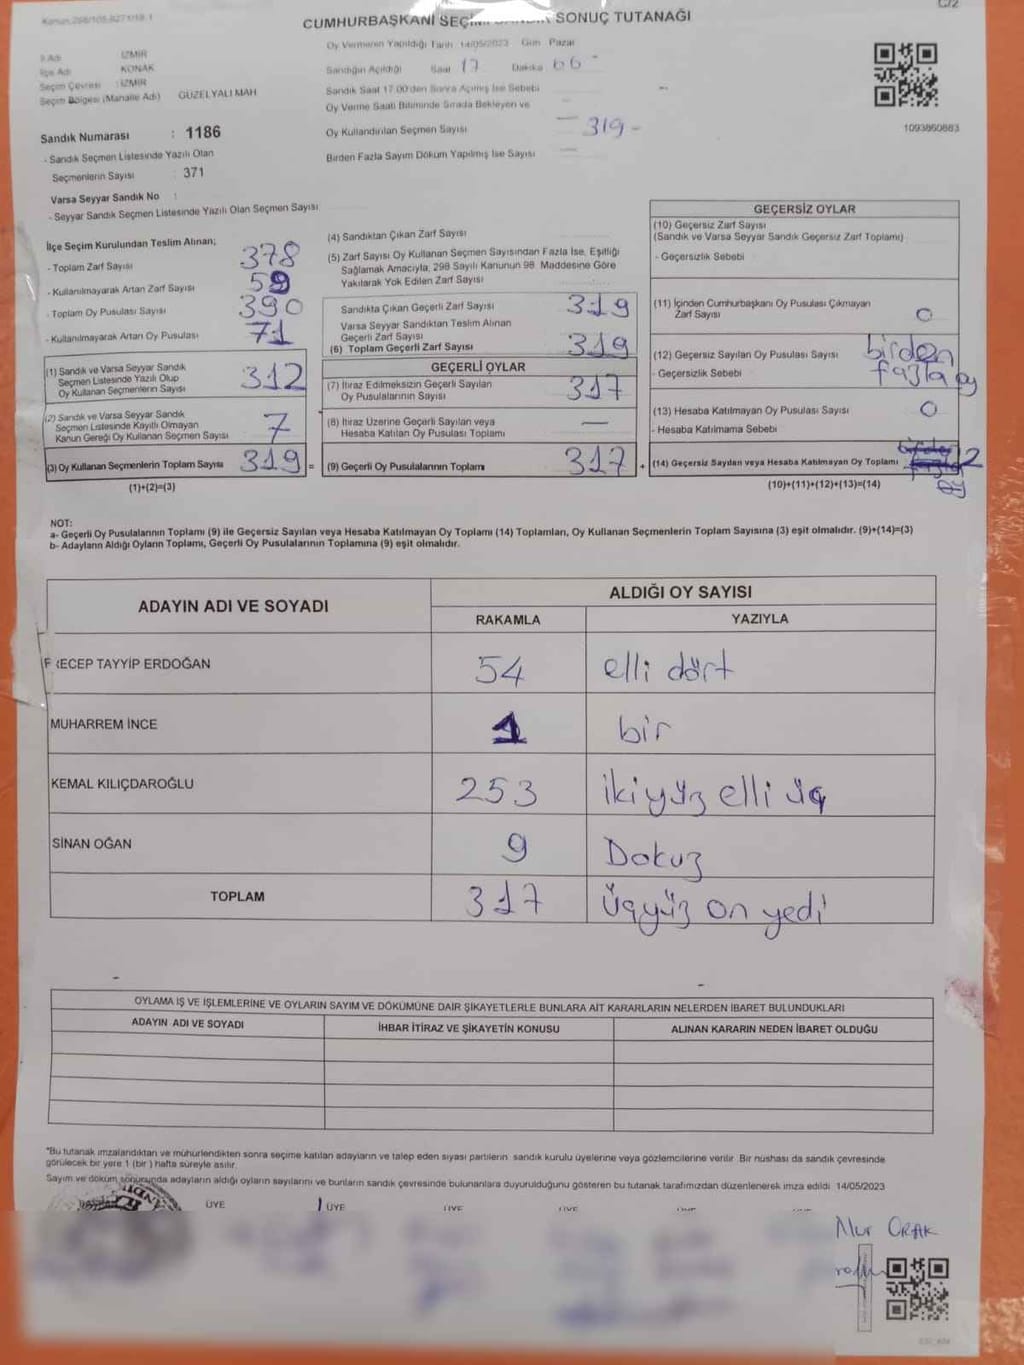 C/2
CUMHURBAŞKANI SEÇİMİ SONUÇ TUTANAĞI
İl Adı : İZMİR
İlçe Adı : KONAK
Seçim Çevresi : İZMİR
Seçim Bölgesi (Mahalle Adı) GÜZELYALI MAH
Oy Vermenin Yapıldığı Tarih 14/05/2023 Gün Pazar
Sandığın Açıldığı Saat 17 Dakika
Sandık Saat 17.00'den Sonra Açılmış İse Sebebi
Oy Verme Saati Bitiminde Sırada Bekleyen ve
Oy Kullandırılan Seçmen Sayısı 319
Birden Fazla Sayım Döküm Yapılmış İse Sayısı
1093860883
Sandık Numarası : 1186
- Sandık Seçmen Listesinde Yazılı Olan
Seçmenlerin Sayısı : 371
Varsa Seyyar Sandık No :
- Seyyar Sandık Seçmen Listesinde Yazılı Olan Seçmen Sayısı
İlçe Seçim Kurulundan Teslim Alınan;
- Toplam Zarf Sayısı 378
- Kullanılmayarak Artan Zarf Sayısı 59
- Toplam Oy Pusulası Sayısı 390
- Kullanılmayarak Artan Oy Pusulası 71
(1) Sandık ve Varsa Seyyar Sandık
Seçmen Listesinde Yazılı Olup
Oy Kullanan Seçmenlerin Sayısı 312
(2) Sandık ve Varsa Seyyar Sandık
Seçmen Listesinde Kayıtlı Olmayan
Kanun Gereği Oy Kullanan Seçmen Sayısı 7
(3) Oy Kullanan Seçmenlerin Toplam Sayısı 319 =
(1)+(2)=(3)
(4) Sandıktan Çıkan Zarf Sayısı
(5) Zarf Sayısı Oy Kullanan Seçmen Sayısından Fazla İse, Eşitliği
Sağlamak Amacıyla, 298 Sayılı Kanunun 98 Maddesine Göre
Yakılarak Yok Edilen Zarf Sayısı
Sandıkta Çıkan Geçerli Zarf Sayısı 319
Varsa Seyyar Sandıktan Teslim Alınan
Geçerli Zarf Sayısı
(6) Toplam Geçerli Zarf Sayısı 319
GEÇERLİ OYLAR
(7) İtiraz Edilmeksizin Geçerli Sayılan
Oy Pusulalarının Sayısı 317
(8) İtiraz Üzerine Geçerli Sayılan veya
Hesaba Katılan Oy Pusulası Toplamı —
(9) Geçerli Oy Pusulalarının Toplamı 317 +
GEÇERSİZ OYLAR
(10) Geçersiz Zarf Sayısı
(Sandık ve Varsa Seyyar Sandık Geçersiz Zarf Toplamı)
- Geçersizlik Sebebi
(11) İçinden Cumhurbaşkanı Oy Pusulası Çıkmayan
Zarf Sayısı 0
(12) Geçersiz Sayılan Oy Pusulası Sayısı birden
- Geçersizlik Sebebi fazla oy
(13) Hesaba Katılmayan Oy Pusulası Sayısı 0
- Hesaba Katılmama Sebebi
(14) Geçersiz Sayılan veya Hesaba Katılmayan Oy Toplamı 2
(10)+(11)+(12)+(13)=(14)
NOT:
a- Geçerli Oy Pusulalarının Toplamı (9) ile Geçersiz Sayılan veya Hesaba Katılmayan Oy Toplamı (14) Toplamları, Oy Kullanan Seçmenlerin Toplam Sayısına (3) eşit olmalıdır. (9)+(14)=(3)
b- Adayların Aldığı Oyların Toplamı, Geçerli Oy Pusulalarının Toplamına (9) eşit olmalıdır.
ADAYIN ADI VE SOYADI
ALDIĞI OY SAYISI
RAKAMLA YAZIYLA
RECEP TAYYİP ERDOĞAN 54 elli dört
MUHARREM İNCE 1 bir
KEMAL KILIÇDAROĞLU 253 ikiyüz elli üç
SİNAN OĞAN 9 Dokuz
TOPLAM 317 üçyüz on yedi
OYLAMA İŞ VE İŞLEMLERİNE VE OYLARIN SAYIM VE DÖKÜMÜNE DAİR ŞİKAYETLERLE BUNLARA AİT KARARLARIN NELERDEN İBARET BULUNDUKLARI
ADAYIN ADI VE SOYADI İHBAR İTİRAZ VE ŞİKAYETİN KONUSU ALINAN KARARIN NEDEN İBARET OLDUĞU
*Bu tutanak imzalandıktan ve mühürlendikten sonra seçime katılan adayların ve talep eden siyasi partilerin sandık kurulu üyelerine veya gözlemcilerine verilir. Bir nüshası da sandık çevresinde
görülecek bir yere 1 (bir) hafta süreyle asılır.
Sayım ve döküm sonucunda adayların aldığı oyların sayılarını ve bunların sandık çevresinde bulunanlara duyurulduğunu gösteren bu tutanak tarafımızdan düzenlenerek imza edildi. 14/05/2023
ÜYE ÜYE
Nur